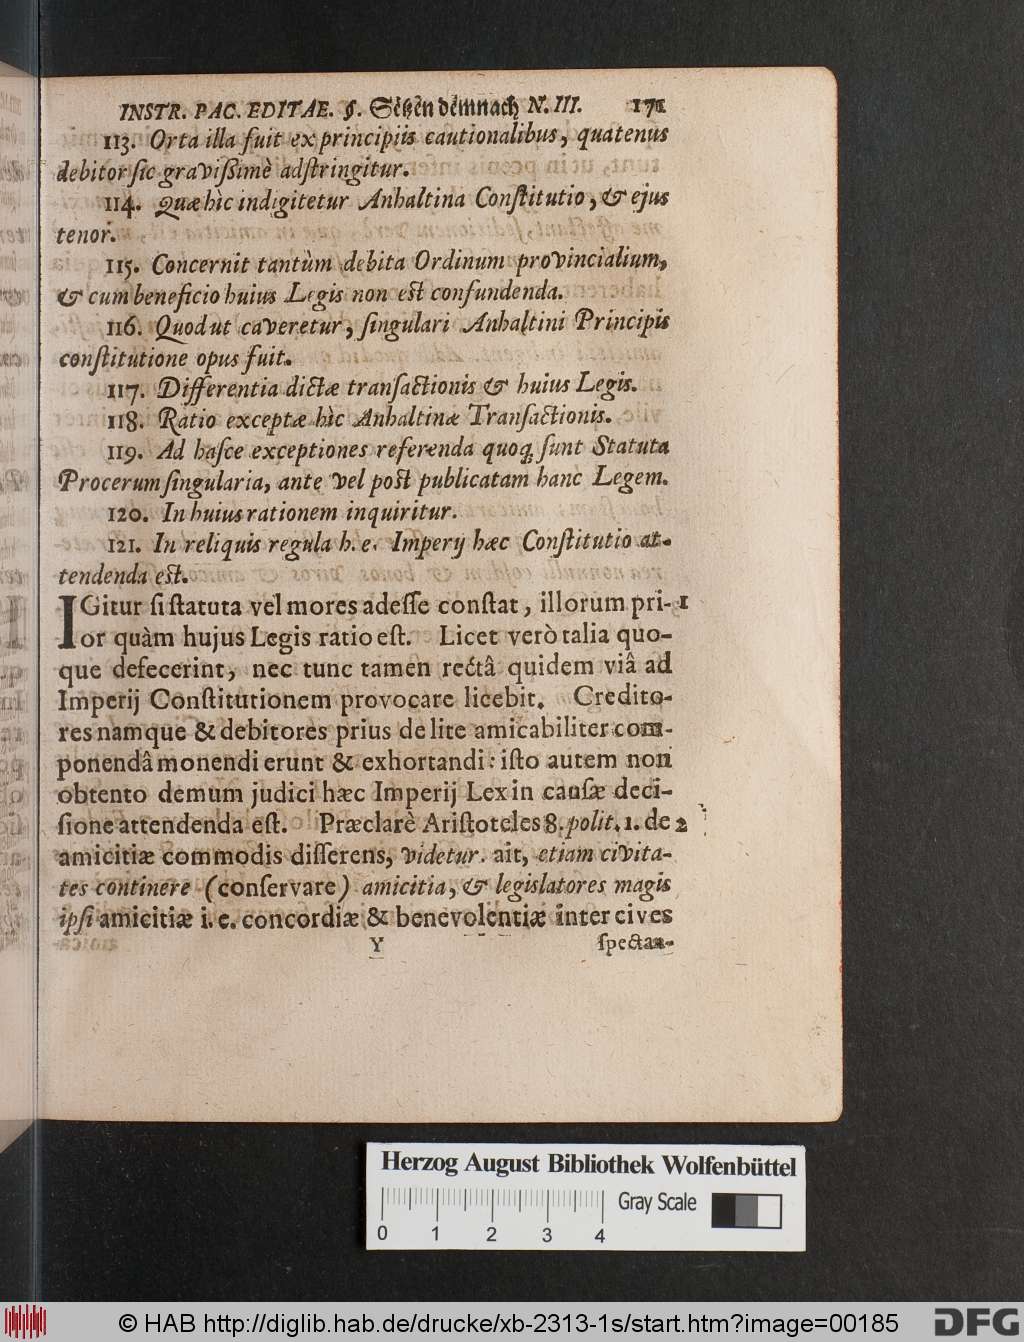 INSTR. PAC. EDITAE. §. Setzen demnach N. III. 171
113. Orta illa fuit ex principiis cautionalibus, quatenus
debitor sic gravissimè adstringitur.
114. Quæ hìc indigitetur Anhaltina Constitutio, & ejus
tenor.
115. Concernit tantùm debita Ordinum provincialium,
& cum beneficio huius Legis non est confundenda.
116. Quod ut caveretur, singulari Anhaltini Principis
constitutione opus fuit.
117. Differentia dictæ transactionis & huius Legis.
118. Ratio exceptæ hìc Anhaltinæ Transactionis.
119. Ad hasce exceptiones referenda quoq; sunt Statuta
Procerum singularia, ante vel post publicatam hanc Legem.
120. In huius rationem inquiritur.
121. In reliquis regula h. e. Imperij hæc Constitutio at-
tendenda est.
IGitur si statuta vel mores adesse constat, illorum pri- 1
or quàm hujus Legis ratio est. Licet verò talia quo-
que defecerint, nec tunc tamen rectâ quidem viâ ad
Imperij Constitutionem provocare licebit. Credito-
res namque & debitores prius de lite amicabiliter com-
ponendâ monendi erunt & exhortandi: isto autem non
obtento demum judici hæc Imperij Lex in causæ deci-
sione attendenda est. Præclarè Aristoteles 8. polit. 1. de 2
amicitiæ commodis disserens, videtur. ait, etiam civita-
tes continere (conservare) amicitia, & legislatores magis
ipsi amicitiæ i. e. concordiæ & benevolentiæ inter cives
Y spectan-
Herzog August Bibliothek Wolfenbüttel
Gray Scale
0 1 2 3 4
© HAB http://diglib.hab.de/drucke/xb-2313-1s/start.htm?image=00185
DFG